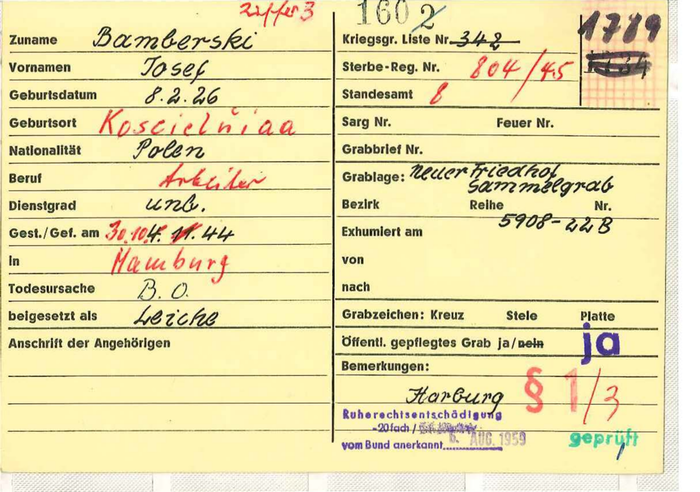 Ziffer 3
1602
1789
Zuname Bamberski
Vornamen Josef
Geburtsdatum 8.2.26
Geburtsort Koscielniaa
Nationalität Polen
Beruf Arbeiter
Dienstgrad unb.
Gest./Gef. am 30.10. 4. 11. 44
in Hamburg
Todesursache B.O.
beigesetzt als Leiche
Anschrift der Angehörigen
Kriegsgr. Liste Nr. 342
Sterbe-Reg. Nr. 804/45
Standesamt 8
Sarg Nr. Feuer Nr.
Grabbrief Nr.
Grablage: Neuer Friedhof
Sammelgrab
Bezirk Reihe Nr.
5908-22B
Exhumiert am
von
nach
Grabzeichen: Kreuz Stele Platte
Öffentl. gepflegtes Grab ja/nein ja
Bemerkungen:
Harburg § 1/3
Ruherechtsentschädigung
-20fach /
vom Bund anerkannt 6. AUG. 1959
geprüft